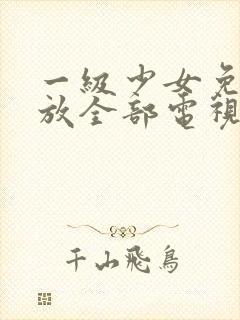 一級少女免
放全部電視
千山飛鳥